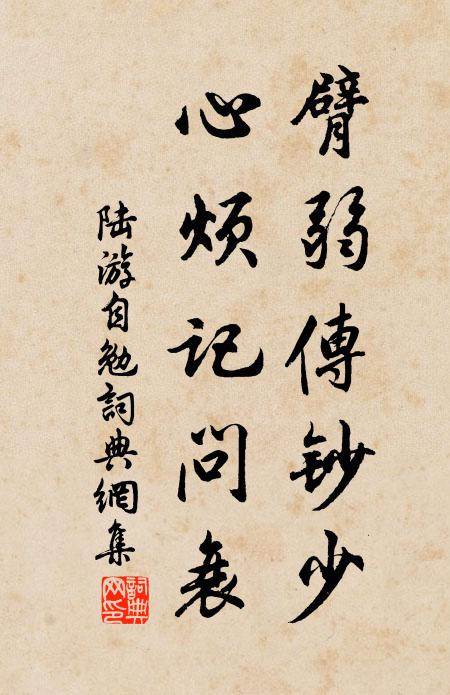 臂弱傳鈔少
心煩記問衰
陆游自勉詞典網集
詞典網印